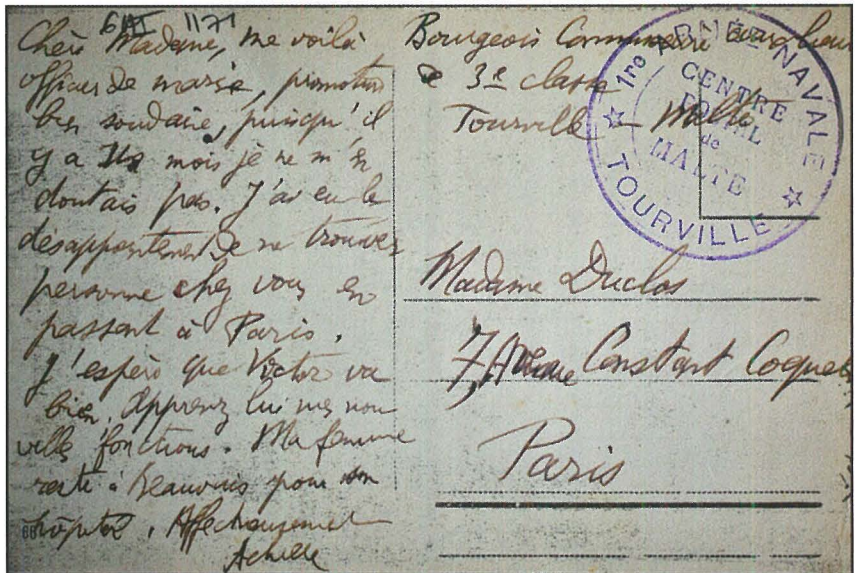 Chère Madame, me voilà
officier de marine, promotion
bien soudaine, puisqu'il
y a mois je ne m'en
doutais pas. J'ai eu le
désappointement de ne trouver
personne chez vous en
passant à Paris.
J'espère que Victor va
bien. Apprenez lui mes nou
velles fonctions. Ma femme
reste à Beauvais pour son
hôpital. Affectueusement
Achille
Bourgeois Commissaire
de 3e classe
Tourville - Malte
1re ARMÉE NAVALE
CENTRE
POSTAL
de
MALTE
TOURVILLE
Madame Duclos
7, Avenue Constant Coquelin
Paris